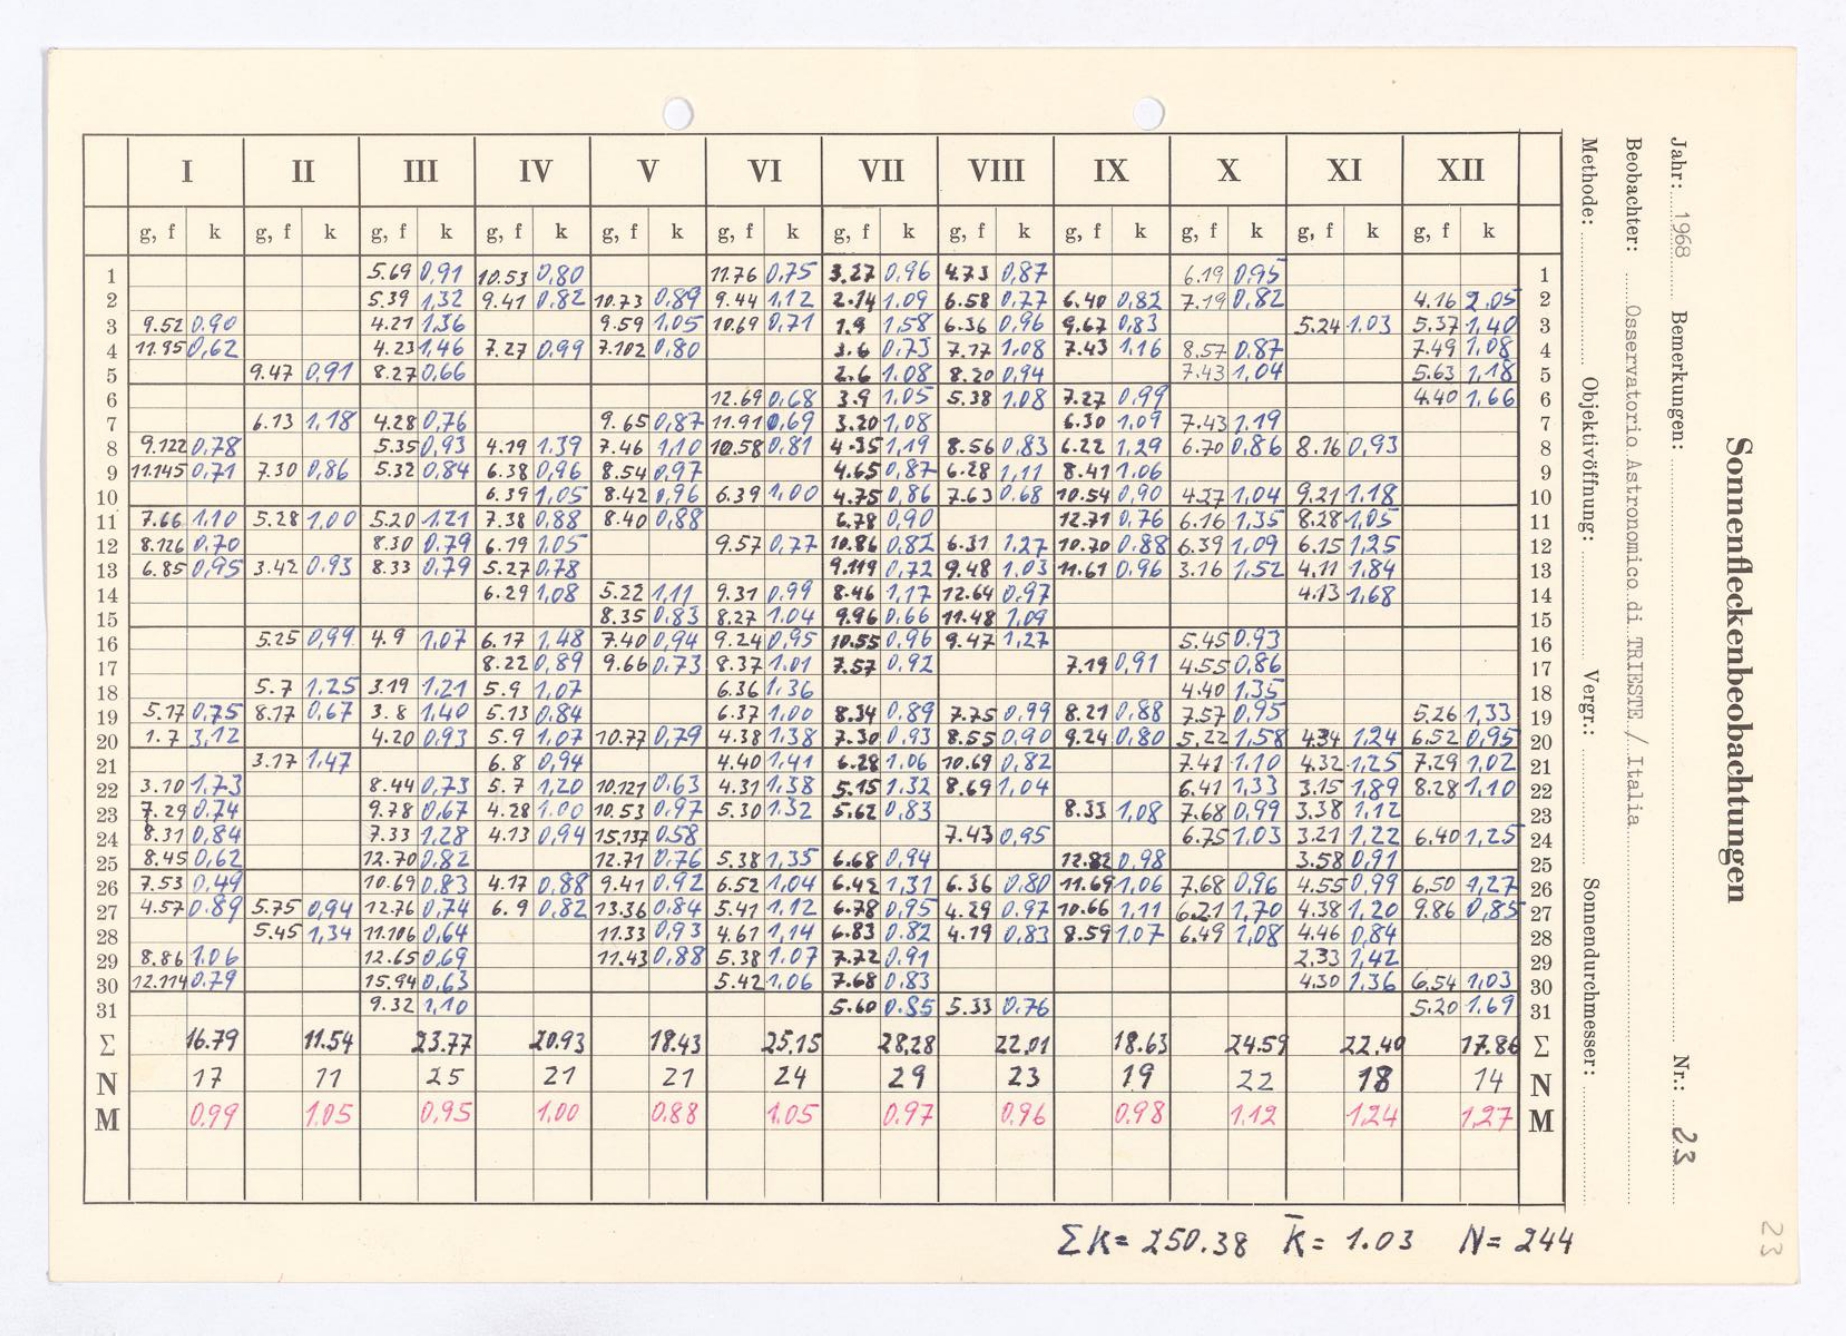 I II III IV V VI VII VIII IX X XI XII
g, f k g, f k g, f k g, f k g, f k g, f k g, f k g, f k g, f k g, f k g, f k g, f k
1 5.69 0,91 10.53 0,80 11.76 0,75 3.27 0,96 4.73 0,87 6.19 0,95 1
2 5.39 1,32 9.41 0.82 10.73 0,89 9.44 1,12 2.14 1.09 6.58 0,77 6.40 0,82 7.19 0,82 4.16 2,05 2
3 9.52 0.90 4.21 1,36 9.59 1,05 10.69 0,71 1.9 1,58 6.36 0,96 9.67 0,83 5.24 1.03 5.37 1,40 3
4 11.95 0,62 4.23 1,46 7.27 0,99 7.102 0,80 3.6 0,73 7.17 1,08 7.43 1,16 8.57 0,87 7.49 1,08 4
5 9.47 0,91 8.27 0,66 2.6 1.08 8.20 0,94 7.43 1,04 5.63 1,18 5
6 12.69 0,68 3.9 1,05 5.38 1.08 7.27 0,99 4.40 1,66 6
7 6.13 1,18 4.28 0,76 9.65 0,87 11.91 0,69 3.20 1,08 6.30 1,09 7.43 1,19 7
8 9.122 0,78 5.35 0,93 4.19 1.39 7.46 1,10 10.58 0,81 4.35 1,19 8.56 0,83 6.22 1,29 6.70 0,86 8.16 0,93 8
9 11.145 0,71 7.30 0,86 5.32 0,84 6.38 0,96 8.54 0,97 4.65 0,87 6.28 1,11 8.41 1.06 9
10 6.39 1,05 8.42 0,96 6.39 1,00 4.75 0,86 7.63 0.68 10.54 0,90 4.27 1,04 9.21 1.18 10
11 7.66 1,10 5.28 1,00 5.20 1,21 7.38 0,88 8.40 0,88 6.78 0,90 12.71 0,76 6.16 1,35 8.28 1,05 11
12 8.126 0.70 8.30 0,79 6.19 1.05 9.57 0,77 10.86 0,82 6.31 1,27 10.70 0.88 6.39 1,09 6.15 1,25 12
13 6.85 0,95 3.42 0.93 8.33 0,79 5.27 0,78 9.119 0,72 9.48 1,03 11.61 0.96 3.16 1,52 4,11 1,84 13
14 6.29 1,08 5.22 1,11 9.31 0.99 8.46 1,17 12.64 0,97 4.13 1,68 14
15 8.35 0,83 8.27 1.04 9.96 0.66 11.48 1,09 15
16 5.25 0,99 4.9 1,07 6.17 1,48 7.40 0,94 9.24 0,95 10.55 0,96 9.47 1,27 5.45 0.93 16
17 8.22 0,89 9.66 0.73 8.37 1.01 7.57 0,92 7.19 0,91 4.55 0,86 17
18 5.7 1.25 3.19 1,21 5.9 1,07 6.36 1,36 4.40 1,35 18
19 5.17 0,75 8.17 0,67 3.8 1,40 5.13 0,84 6.37 1,00 8.34 0.89 7.75 0,99 8.21 0,88 7.57 0,95 5.26 1,33 19
20 1.7 3,12 4.20 0.93 5.9 1,07 10.77 0,79 4.38 1.38 7.30 0,93 8.55 0,90 9.24 0,80 5,22 1,58 4.34 1,24 6.52 0,95 20
21 3.17 1,47 6.8 0,94 4.40 1,41 6.28 1.06 10.69 0,82 7.41 1.10 4.32 1,25 7.29 1,02 21
22 3.10 1,73 8.44 0,73 5.7 1,20 10.121 0.63 4.31 1,38 5.15 1.32 8.69 1,04 6.41 1,33 3.15 1,89 8.28 1,10 22
23 7.29 0.74 9.78 0,67 4.28 1.00 10.53 0.97 5.30 1.32 5.62 0,83 8.33 1,08 7.68 0,99 3.38 1,12 23
24 8.31 0,84 7.33 1,28 4.13 0,94 15.137 0.58 7.43 0,95 6.75 1.03 3.21 1,22 6,40 1,25 24
25 8.45 0,62 12.70 0,82 12.71 0,76 5.38 1,35 6.68 0,94 12.82 0,98 3.58 0,91 25
26 7.53 0,49 10.69 0,83 4.17 0,88 9.41 0.92 6.52 1,04 6.42 1,31 6.36 0,80 11.69 1,06 7.68 0,96 4.55 0,99 6,50 1,27 26
27 4.57 0.89 5.75 0,94 12.76 0,74 6.9 0,82 13.36 0,84 5.41 1.12 6.78 0,95 4.29 0.97 10.66 1,11 6.21 1,70 4.38 1,20 9.86 0,85 27
28 5.45 1,34 11.106 0,64 11.33 0,93 4.61 1,14 6.83 0.82 4.19 0,83 8.59 1.07 6,49 1,08 4.46 0,84 28
29 8.86 1.06 12.65 0,69 11.43 0,88 5.38 1.07 7.72 0.91 2,33 1,42 29
30 12.114 0.79 15.94 0,63 5.42 1,06 7.68 0,83 4,30 1,36 6,54 1,03 30
31 9.32 1,10 5.60 0.85 5.33 0.76 5.20 1.69 31
Σ 16.79 11.54 23.77 20.93 18.43 25,15 28,28 22,01 18.63 24.59 22,40 17.86 Σ
N 17 11 25 21 21 24 29 23 19 22 18 14 N
M 0.99 1.05 0,95 1,00 0.88 1.05 0.97 0,96 0.98 1,12 1,24 1,27 M
Σk = 250.38 k̄ = 1.03 N = 244
Sonnenfleckenbeobachtungen
Jahr: 1968 Bemerkungen: Nr.: 23
Beobachter: Osservatorio Astronomico di TRIESTE / Italia
Methode: Objektivöffnung: Vergr.: Sonnendurchmesser:
23